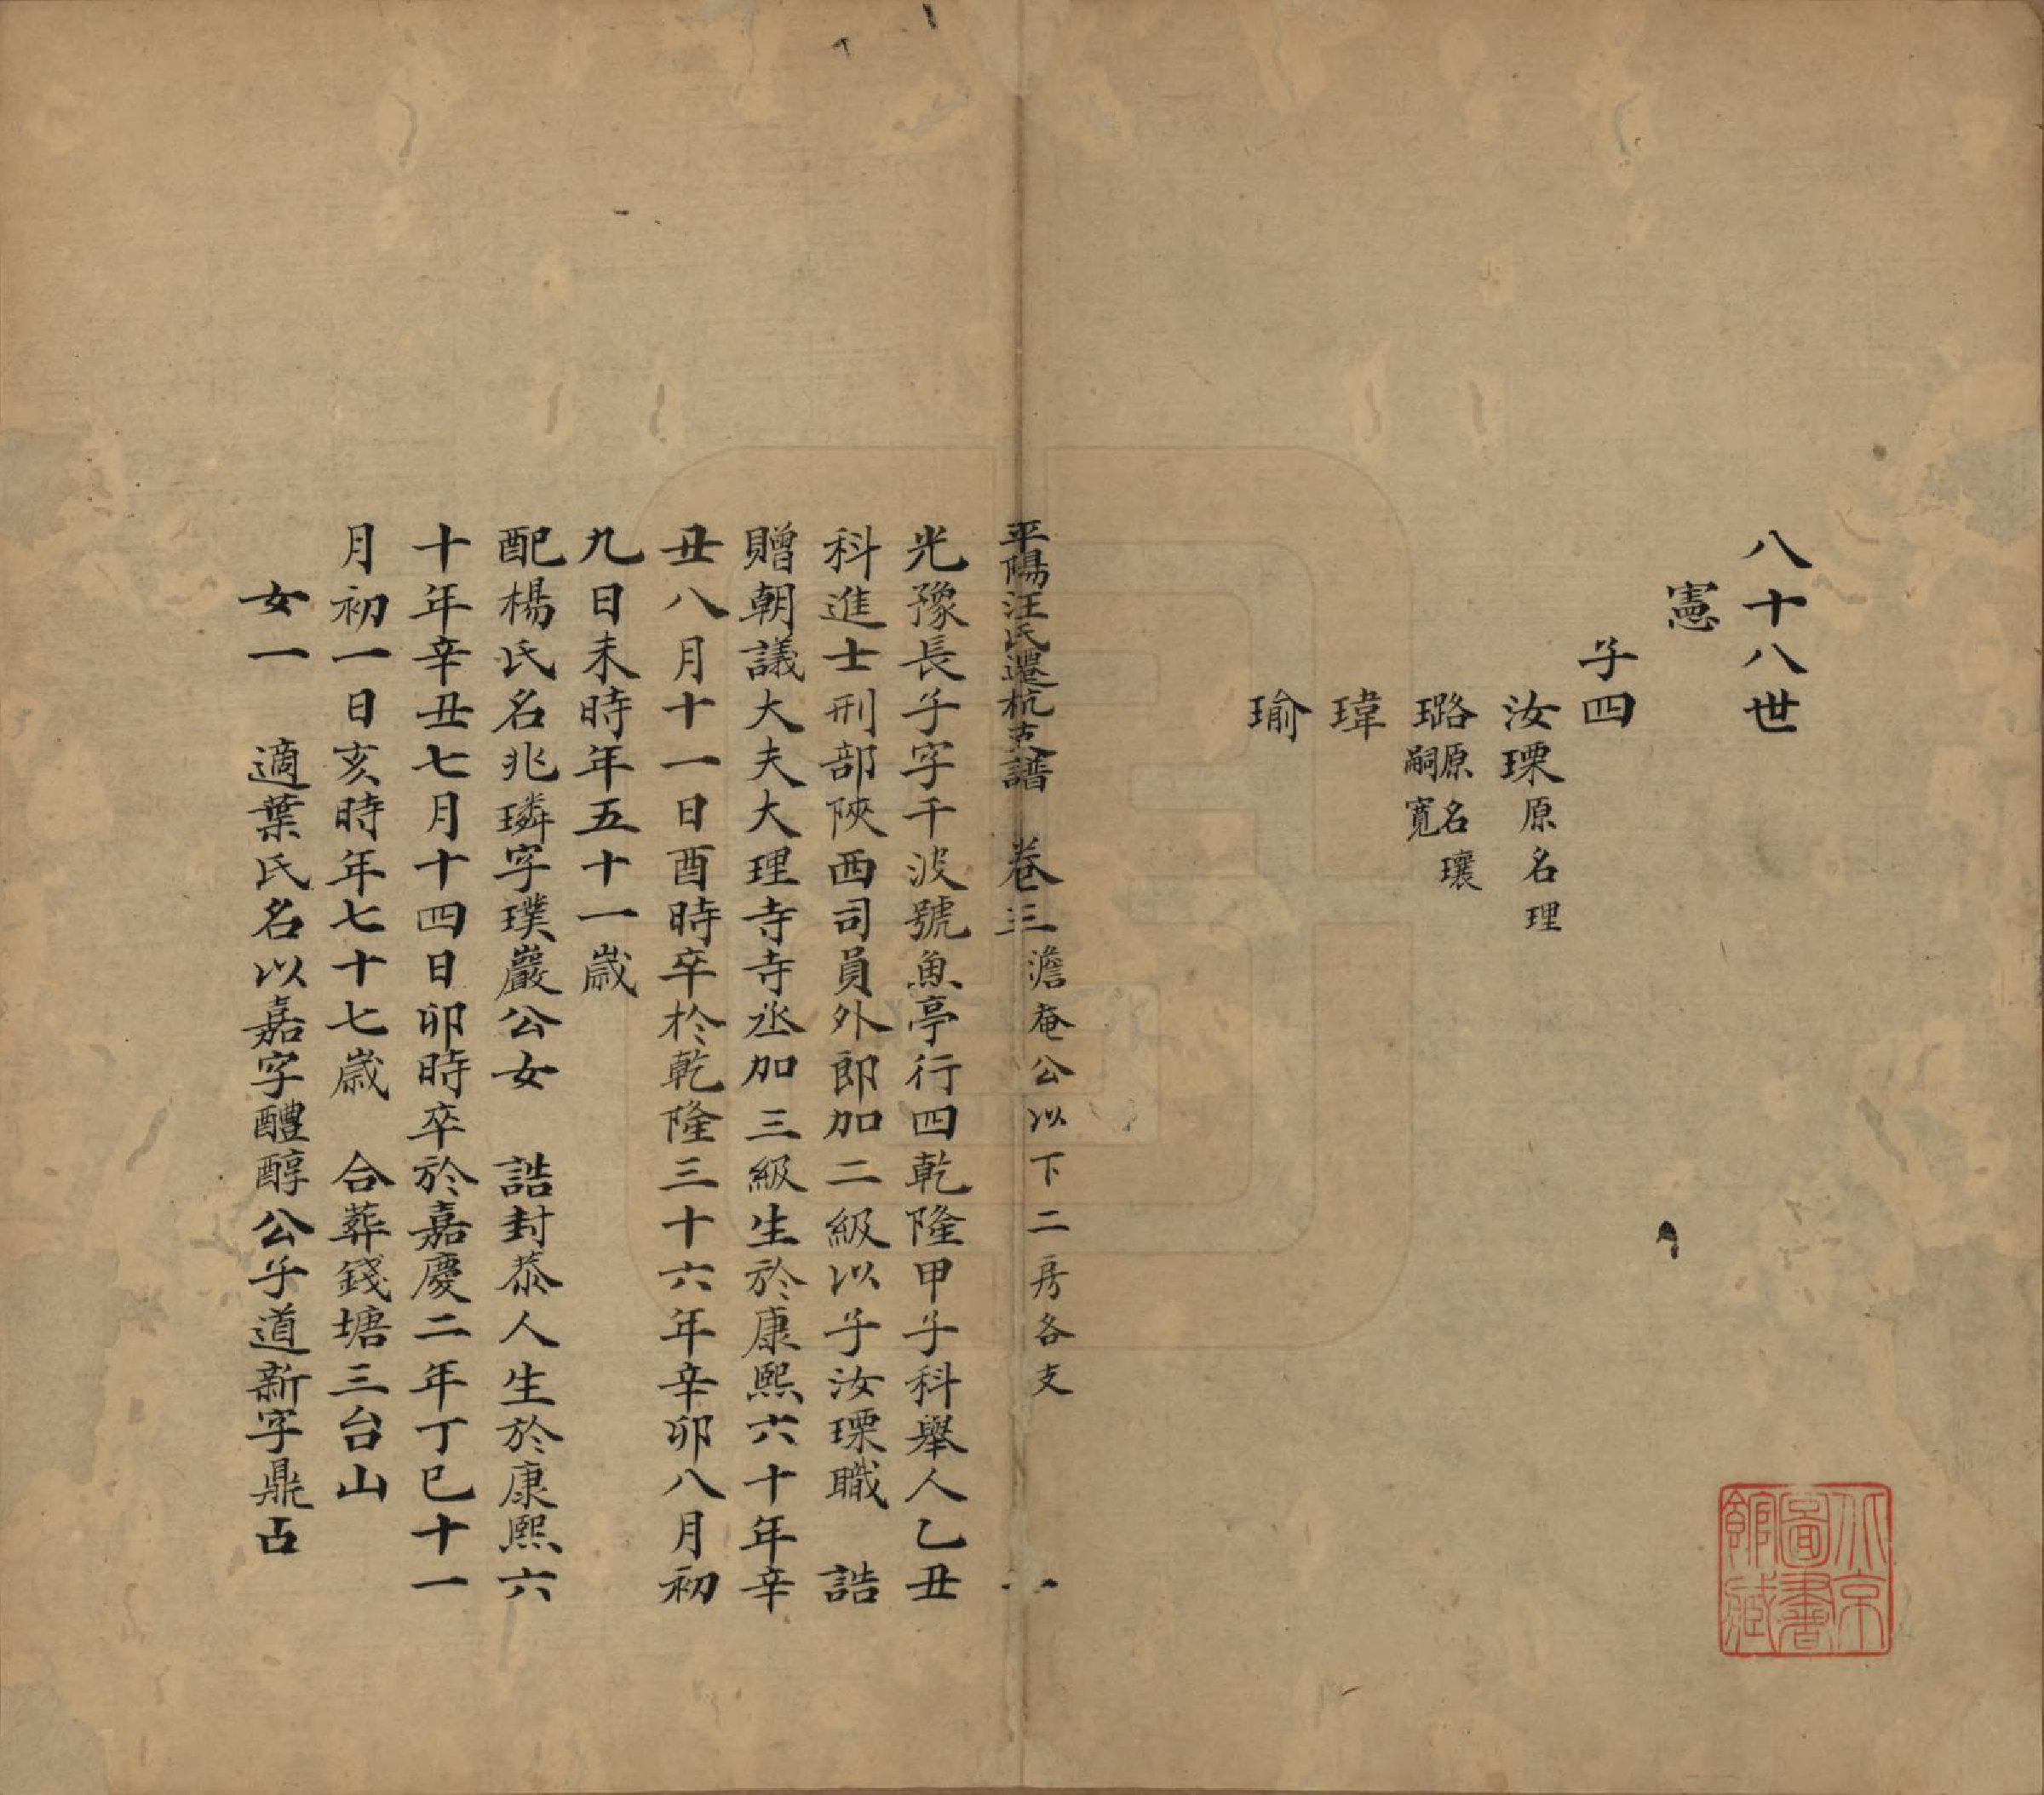 八十八世
憲
子四
汝瑮原名理
璐原名瓌
嗣寬
瑋
瑜
平陽汪氏遷杭支譜　卷三　澹菴公以下二房各支　一
光豫長子字千波號魚亭行四乾隆甲子科舉人乙丑
科進士刑部陝西司員外郎加二級以子汝瑮職　誥
贈朝議大夫大理寺寺丞加三級生於康熙六十年辛
丑八月十一日酉時卒於乾隆三十六年辛卯八月初
九日未時年五十一歲
配楊氏名兆璘字璞巖公女　誥封恭人生於康熙六
十年辛丑七月十四日卯時卒於嘉慶二年丁巳十一
月初一日亥時年七十七歲　合葬錢塘三台山
女一　適葉氏名以嘉字醴醇公子道新字鼎占
北京圖書館藏